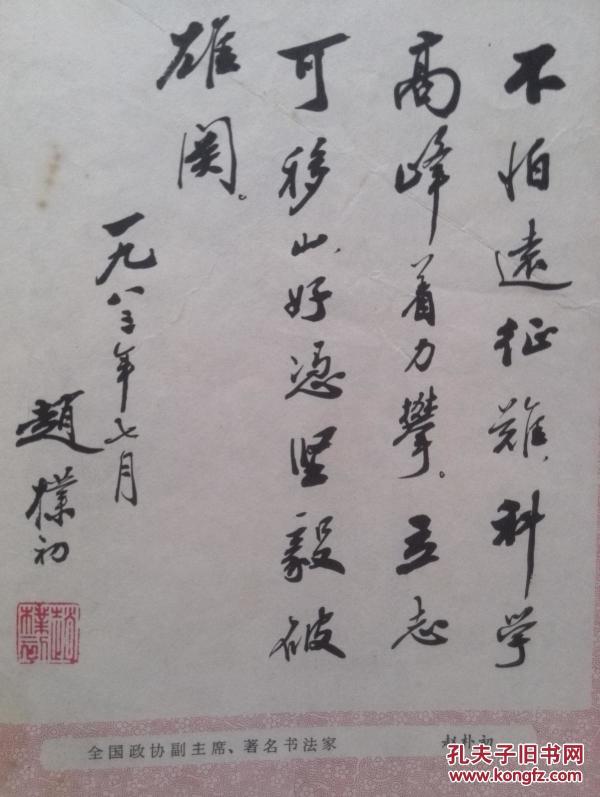 不怕遠征難，科学
高峰着力攀。立志
可移山，好憑坚毅破
雄関。
一九八三年七月
趙樸初
趙樸初
全国政协副主席、著名书法家 赵朴初
孔夫子旧书网
www.kongfz.com